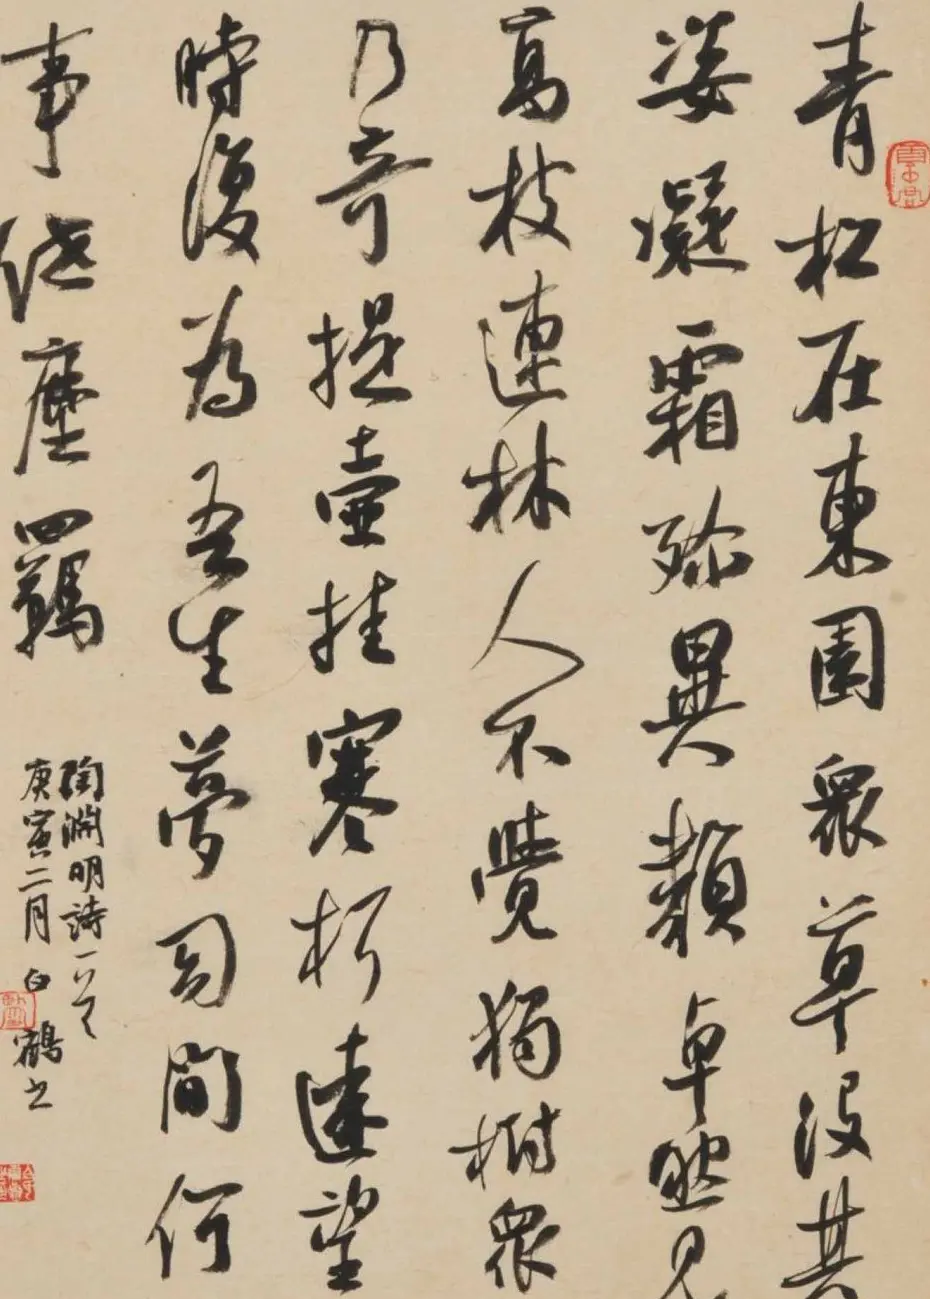 青松在東園衆草沒其
姿凝霜殄異類卓然見
高枝連林人不覺獨樹衆
乃奇提壺挂寒柯遠望
時復為吾生夢幻間何
事紲塵羈
陶淵明詩一首
庚寅二月白鶴書